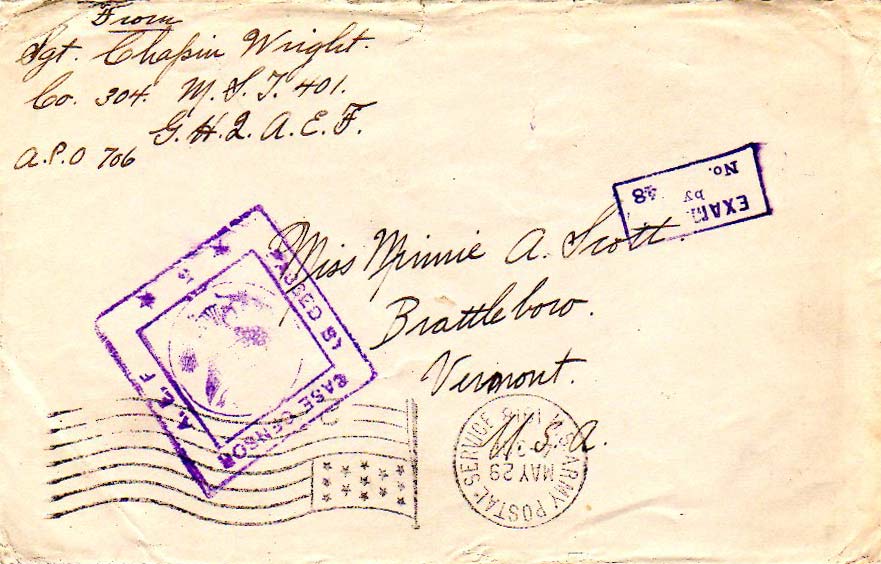 From
Sgt. Chapin Wright.
Co. 304. M. S. T. 401.
G. H. Q. A. E. F.
A.P.O 706
EXAM.
by
No. 48
Miss Minnie A. Scott.
Brattleboro.
Vermont.
U. S. A.
PASSED BY
BASE CENSOR
A. E. F
U.S. ARMY POSTAL SERVICE
MAY 29